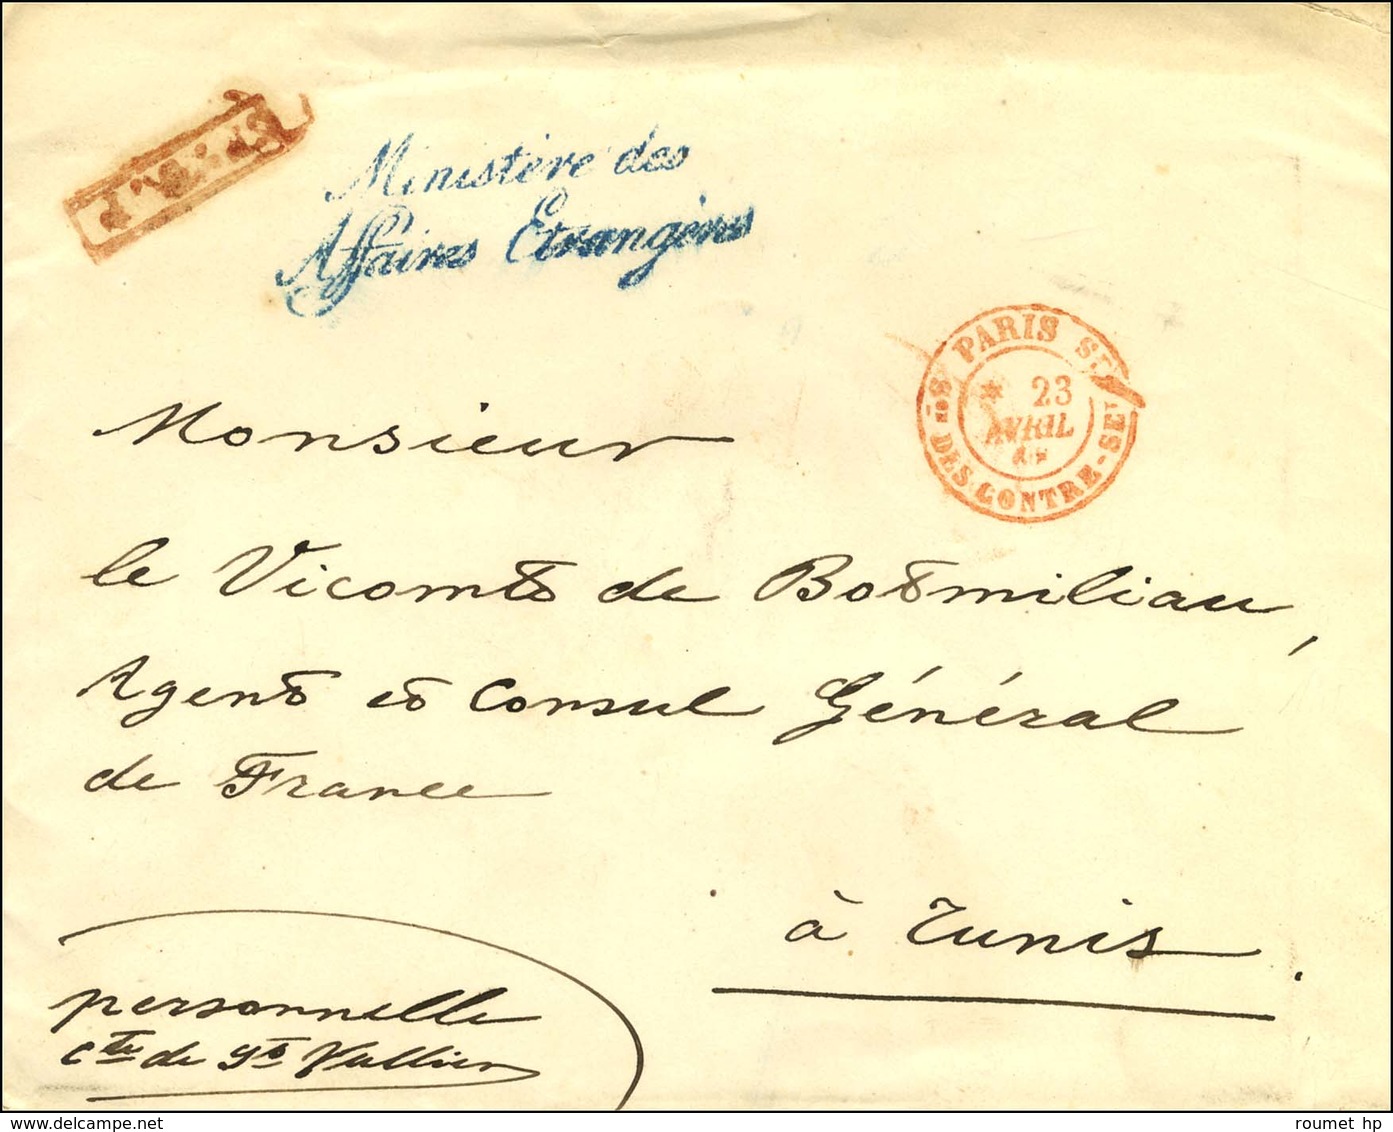 Ministère des
Affaires Etrangères
PARIS
23
AVRIL
DES CONTRE-SEⁱ
Monsieur
le Vicomte de Botmiliau,
Agent et Consul Général
de France
à Tunis.
personnelle
Cte de St Vallier
delcampe.net
roumet hp